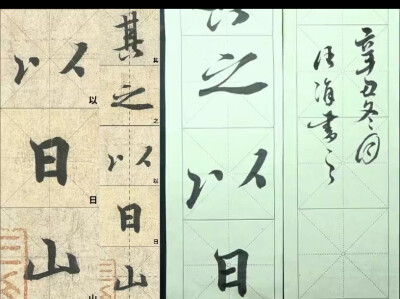 以日山
以日山
其之以日山
其之以日
之以日
辛丑冬月
書之